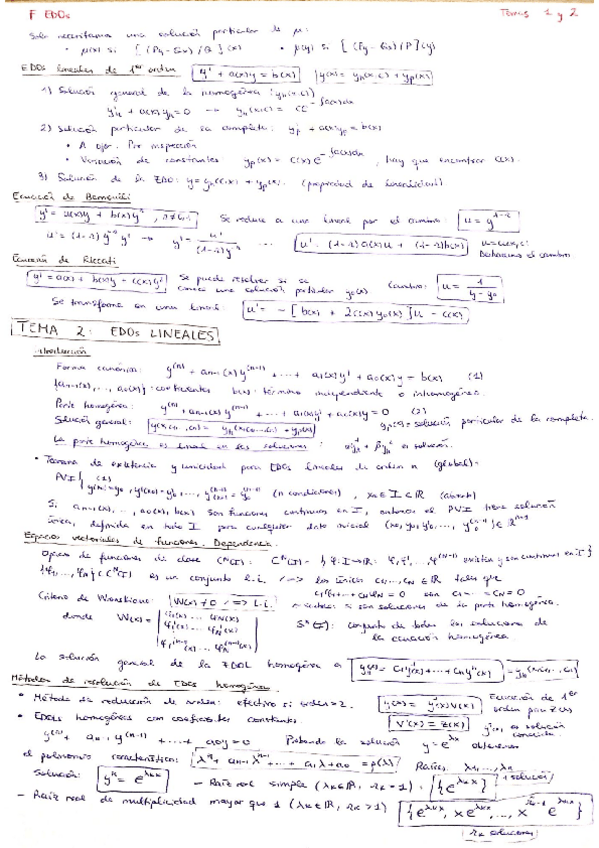 F EDOs Temas 1 y 2
Solo necesitamos una solución particular de μ:
• μ(x) si [(Py-Qx)/Q](x) • μ(y) si [(Py-Qx)/P](y)
EDOs lineales de 1er orden y' + a(x)y = b(x) y(x) = yh(x,c) + yp(x)
1) Solución general de la homogénea: yh(x,c)
y'h + a(x)yh = 0 → yh(x,c) = Ce^-∫a(x)dx
2) Solución particular de la completa: y'p + a(x)yp = b(x)
• A ojo. Por inspección
• Variación de constantes yp(x) = C(x)e^-∫a(x)dx, hay que encontrar C(x).
3) Solución de la EDO: y = yh(x,c) + yp(x). (propiedad de linealidad)
Ecuación de Bernoulli
y' = a(x)y + b(x)y^n, n≠0,1 Se reduce a una lineal por el cambio: u = y^1-n
u' = (1-n)y^-n y' → y' = u'/(1-n)y^-n ... u' = (1-n)a(x)u + (1-n)b(x)
Deshacemos el cambio
Ecuación de Riccati
y' = a(x) + b(x)y + c(x)y² Se puede resolver si se
conoce una solución particular y0(x) Cambio: u = 1/(y-y0)
Se transforma en una lineal: u' = -[b(x) + 2c(x)y0(x)]u - c(x)
TEMA 2: EDOs LINEALES
Introducción
Forma canónica: y^(n) + an-1(x)y^(n-1) + ... + a1(x)y' + a0(x)y = b(x) (1)
{an-1(x),..., a0(x)}: coeficientes b(x): término independiente o inhomogéneo.
Parte homogénea: y^(n) + an-1(x)y^(n-1) + ... + a1(x)y' + a0(x)y = 0 (2)
Solución general: yp(x) = solución particular de la completa.
La parte homogénea es lineal en las soluciones: es solución.
• Teorema de existencia y unicidad para EDOs lineales de orden n (global):
PVI (n condiciones), x0 ∈ I ⊂ R (abierto)
Si an-1,..., a0(x), b(x) son funciones continuas en I, entonces el PVI tiene solución
única, definida en todo I para cualquier dato inicial
Espacios vectoriales de funciones. Dependencia.
Espacio de funciones de clase C^n(I): existen y son continuas en I}
es un conjunto l.i. los únicos c1,...,cn ∈ R tales que
Criterio de Wronskiano: W(x) ≠ 0 l.i. si son soluciones de la parte homogénea.
donde W(x) = conjunto de todas las soluciones de
la ecuación homogénea
La solución general de la EDOL homogénea
Métodos de resolución de EDOs homogéneas.
• Método de reducción de orden: efectivo si orden=2. Ecuación de 1er
V'(x) = z(x) orden para z(x)
• EDOs homogéneas con coeficientes constantes. es solución conocida
y^(n) + an-1 y^(n-1) + ... + a0y = 0 Probando la solución y = e^λx obtenemos
el polinomio característico: λ^n + an-1λ^n-1 + ... + a1λ + a0 = p(λ) Raíces λ1,..., λn
Solución: - Raíz real simple (λk∈R, rk=1): {e^λkx} 1 solución
- Raíz real de multiplicidad mayor que 1 (λk∈R, rk>1) {e^λkx, xe^λkx, ..., x^rk-1 e^λkx}
rk soluciones